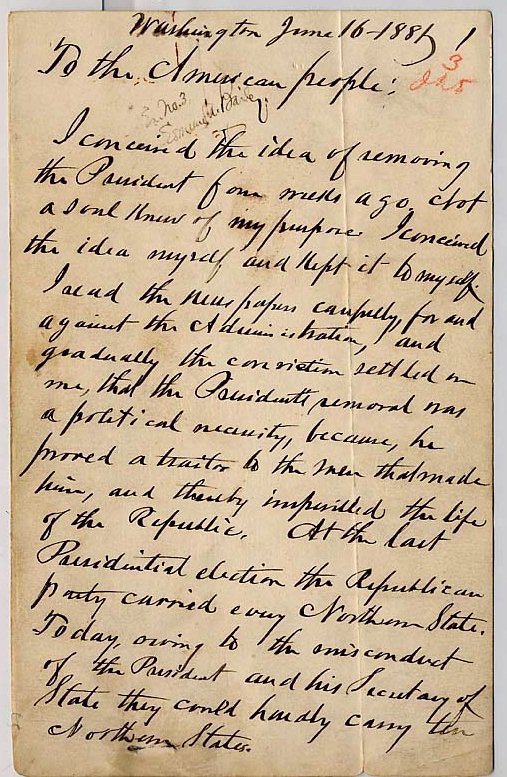 Washington June 16-1881, 1
3
To the American people:
Ex. No. 3
I conceived the idea of removing
the President four weeks ago. Not
a soul knew of my purpose. I conceived
the idea myself and kept it to myself.
I read the newspapers carefully, for and
against the Administration, and
gradually the conviction settled on
me, that the President's removal was
a political necessity, because, he
proved a traitor to the men that made
him, and thereby imperilled the life
of the Republic. At the last
Presidential election the Republican
party carried every Northern State.
Today, owing to the misconduct
of the President and his Secretary of
State they could hardly carry ten
Northern States.